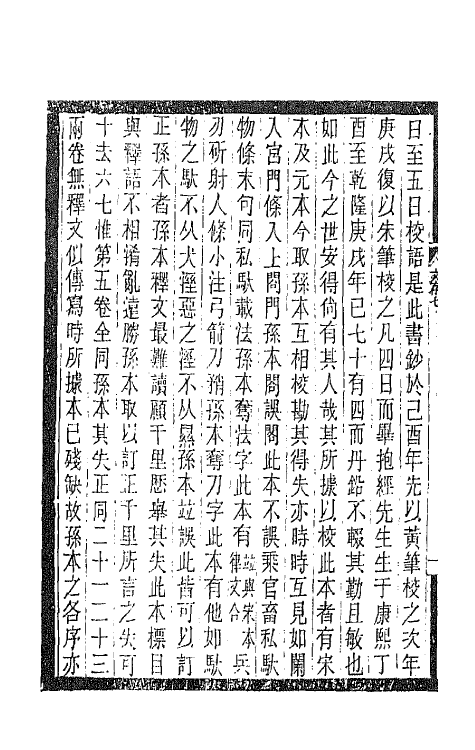 日至五日校語是此書鈔於己酉年先以黃筆校之次年
庚戌復以朱筆校之凡四日而畢抱經先生生于康熙丁
酉至乾隆庚戌年已七十有四而丹鉛不輟其勤且敏也
如此今之世安得倘有其人哉其所據以校此本者有宋
本及元本今取孫本互相校勘其得失亦時時互見如闌
入宮門條入上閤門孫本閤誤閣此本不誤乘官畜私馱
物條末句同私馱載法孫本奪法字此本有竝與宋本兵律文合
刃斫射人條小注弓箭刀矟孫本奪刀字此本有他如馱
物之馱不从犬淫惡之淫不从㬎孫本竝誤此皆可以訂
正孫本者孫本釋文最難讀顧千里歷舉其失此本標目
與釋語不相淆亂遠勝孫本取以訂正千里所言之失可
十去六七惟第五卷全同孫本其失正同二十一二十三
兩卷無釋文似傳寫時所據本已殘缺故孫本之各序亦